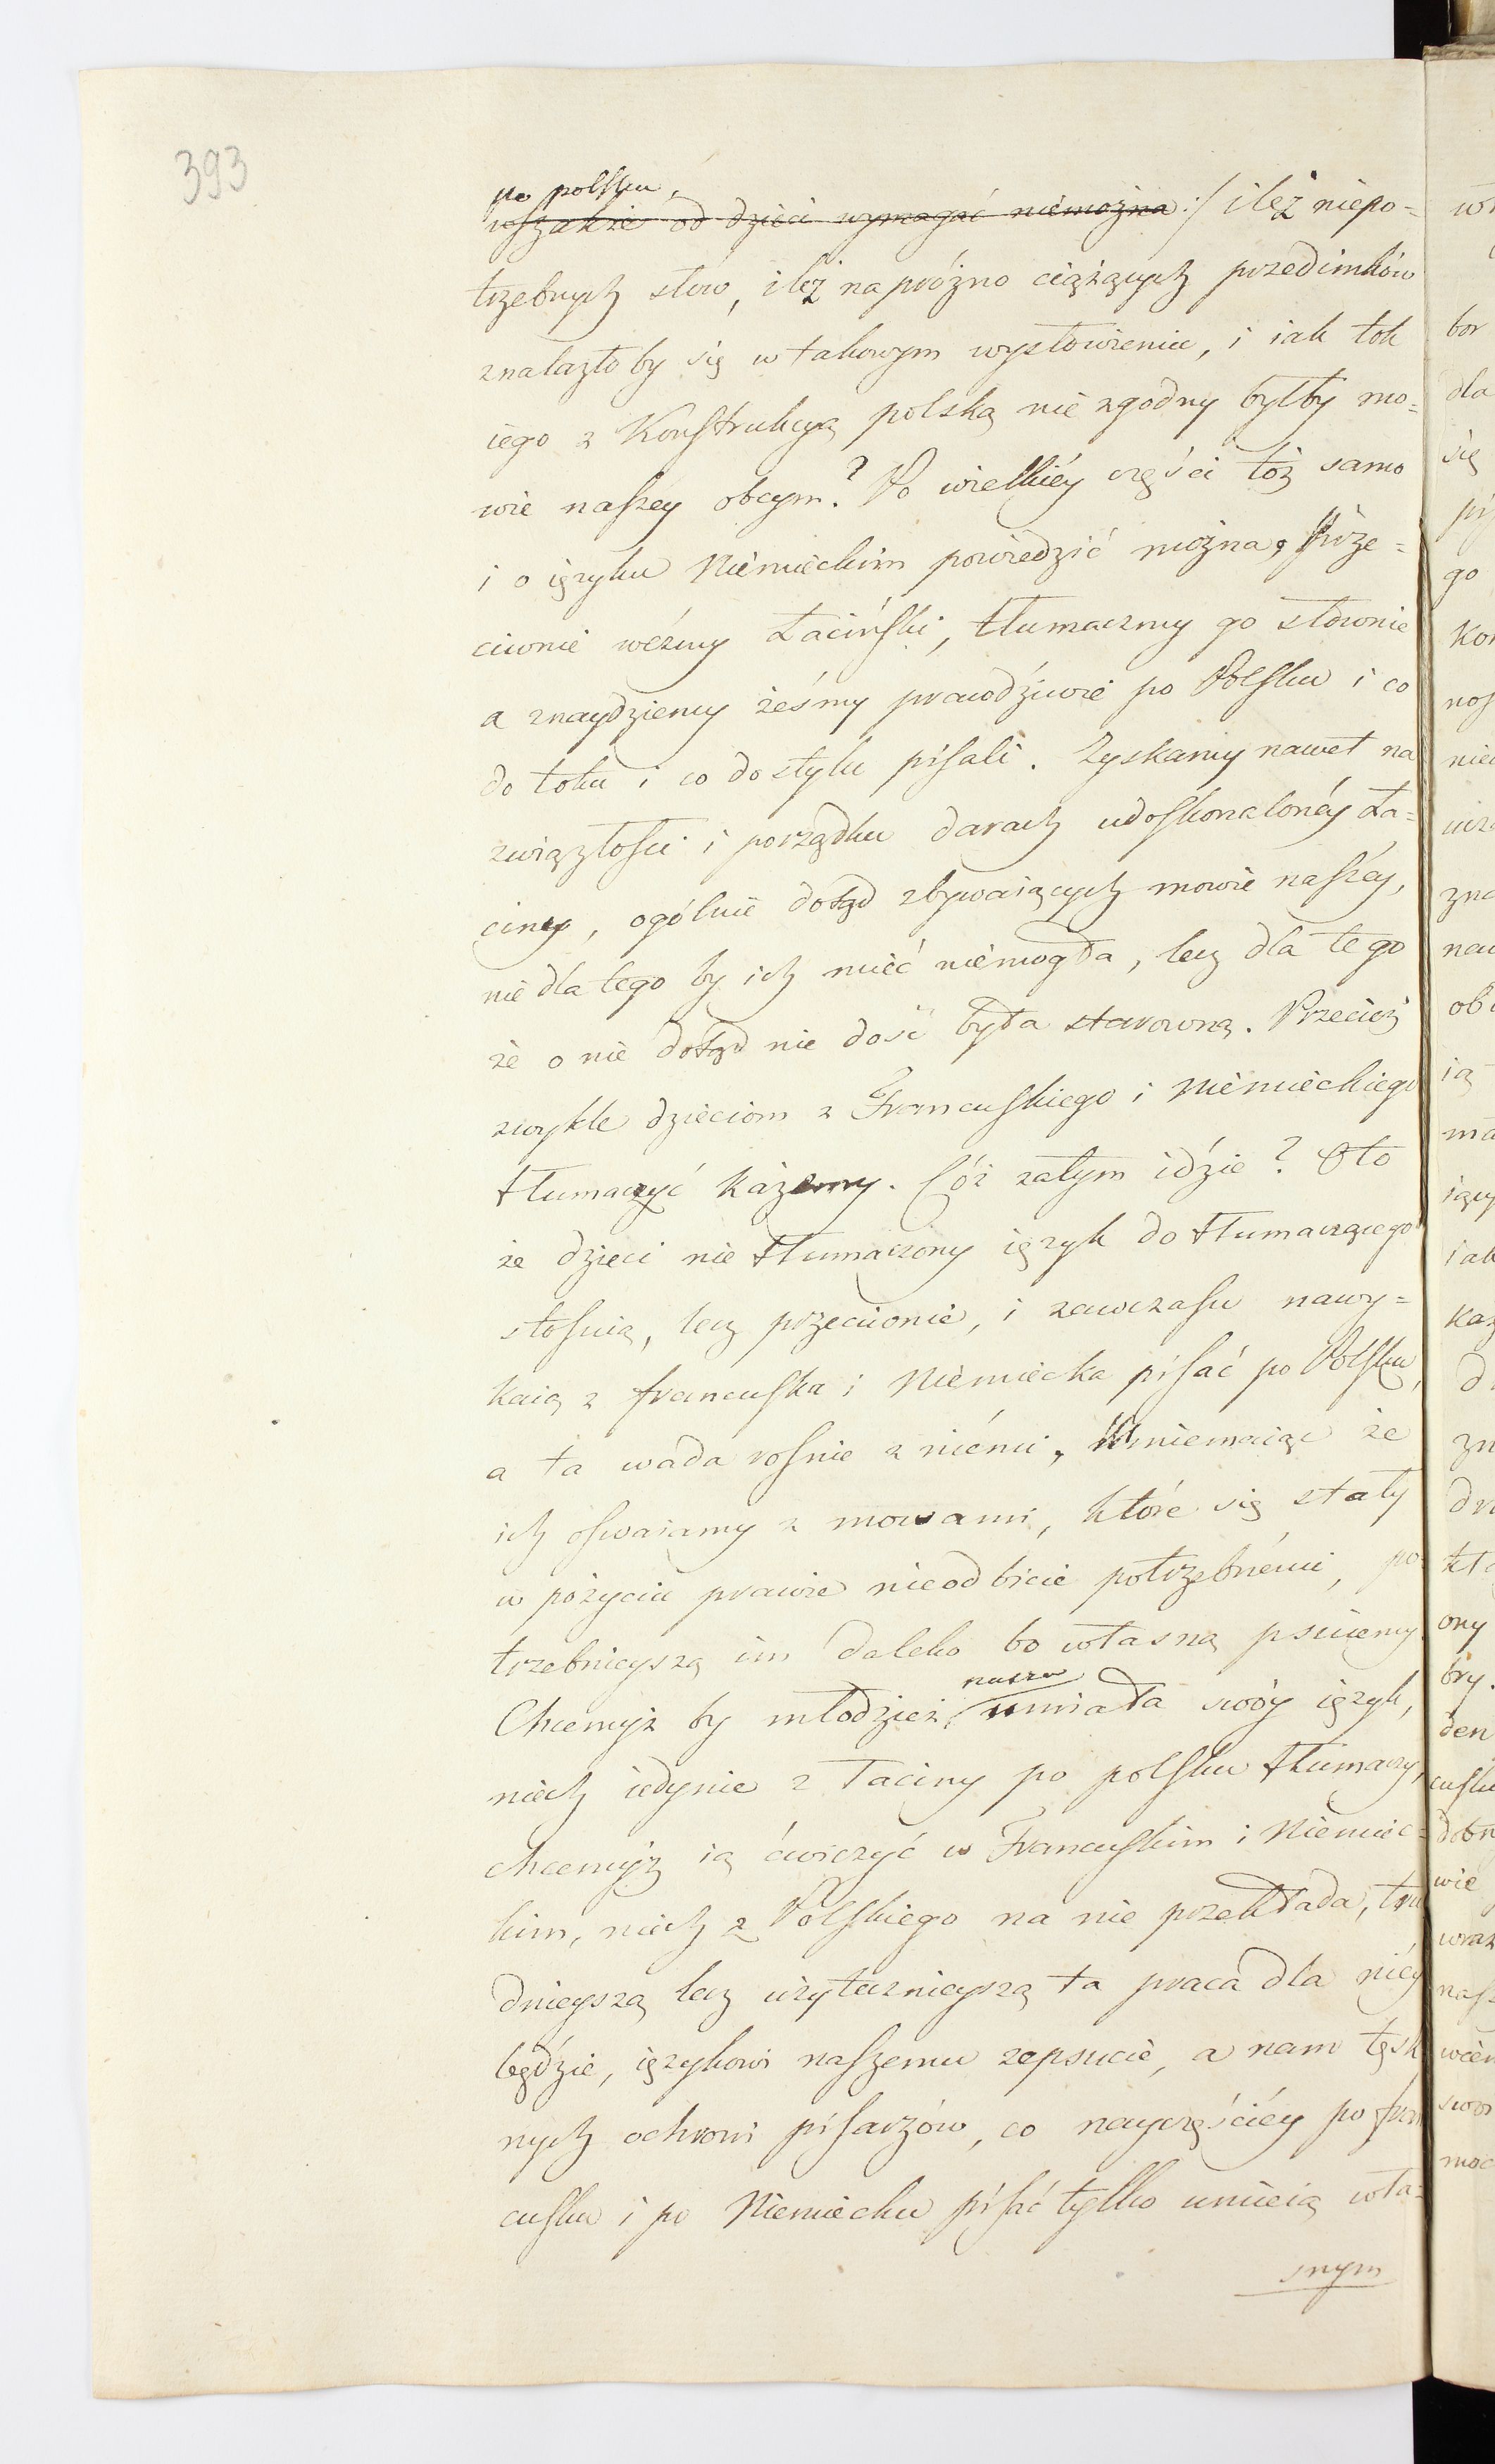 393
po polsku,
wszakże od dzieci wymagać niemożna :/ ileż niepo=
trzebnych słow, ileż na próżno ciążących przedimków
znalazło by się w takowym wysłowieniu, i iak tok
iego z Konstrukcyą polską nie zgodny byłby mo=
wie naszey obcym? Po wielkiéy częśći toż samo
i o ięzyku Niemieckim powiedzić można, Prze=
ciwnie weźmy Łaciński, tłumaczmy go słownie
a znaydziemy żeśmy prawdźiwie po Polsku i co
do toku i co do stylu pisali. Zyskamy nawet na
związłosci i porządku darach udoskonalonéy Ła=
ciny, ogólnie dotąd zbywaiących mowie naszéy,
nie dla tego by ich mieć niemogła, lecz dla tego
że o nie dotąd nie dość była starowną. Przecież
zwykle dzieciom z Francuskiego i Niemieckiego
tłumaczyć każemy. Cóż zatym idźie? Oto
że dzieci nie tłumaczony ięzyk do tłumaczącego
stosuią, lecz przeciwnie, i zawczasu nawy=
kaią z francuska i Niemiecka pisać po Polsku,
a ta wada rosnie z niémi, Mniemaiąc że
ich oswaiamy z mowami, które się stały
w pożyciu prawie nieodbicie potrzebnémi, po
trzebnieyszą im daleko bo własną psuiemy
Chcemyż by młodzież nasza umiała swóy ięzyk,
niech iedynie z łaciny po polsku tłumaczy,
chcemyż ią ćwiczyć w Francuskim i Niemiec=
kim, niech z Polskiego na nie przekłada, tru
dnieyszą lecz użytecznieyszą ta praca dla niéy
będźie, ięzykowi naszemu zepsucie, a nam tęsk
nych ochroni pisarzów, co nayczęśćiéy po fran
cusku i po Niemiecku pisać tylko umieią wła=
snym